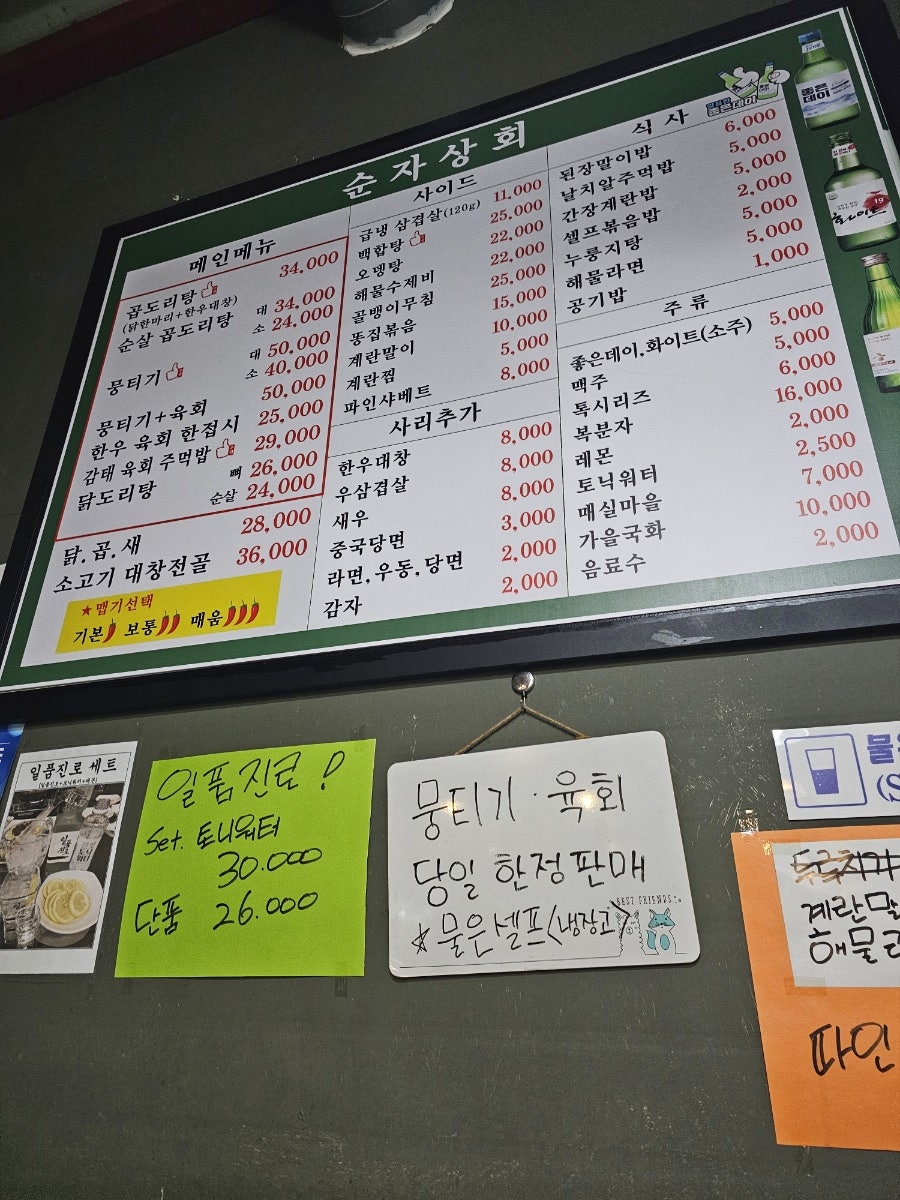 순자상회
메인메뉴
곱도리탕 34,000
(닭한마리+한우대창)
순살 곱도리탕 대 34,000
소 24,000
뭉티기 대 50,000
소 40,000
뭉티기+육회 50,000
한우 육회 한접시 25,000
감태 육회 주먹밥 29,000
닭도리탕 뼈 26,000
순살 24,000
닭.곱.새 28,000
소고기 대창전골 36,000
★맵기선택
기본 보통 매움
사이드
급냉 삼겹살(120g) 11,000
백합탕 25,000
오뎅탕 22,000
해물수제비 22,000
골뱅이무침 25,000
똥집볶음 15,000
계란말이 10,000
계란찜 5,000
파인샤베트 8,000
사리추가
한우대창 8,000
우삼겹살 8,000
새우 8,000
중국당면 3,000
라면,우동,당면 2,000
감자 2,000
식사
된장말이밥 6,000
날치알주먹밥 5,000
간장계란밥 5,000
셀프볶음밥 2,000
누룽지탕 5,000
해물라면 5,000
공기밥 1,000
주류
좋은데이,화이트(소주) 5,000
맥주 5,000
톡시리즈 6,000
복분자 16,000
레몬 2,000
토닉워터 2,500
매실마을 7,000
가을국화 10,000
음료수 2,000
좋은데이
좋은
데이
화이트
19
일품진로 세트
일품진로!
Set. 토니워터
30.000
단품 26.000
뭉티기·육회
당일 한정판매
☆물은셀프(냉장고)
BEST FRIENDS
계란말
해물라
파인